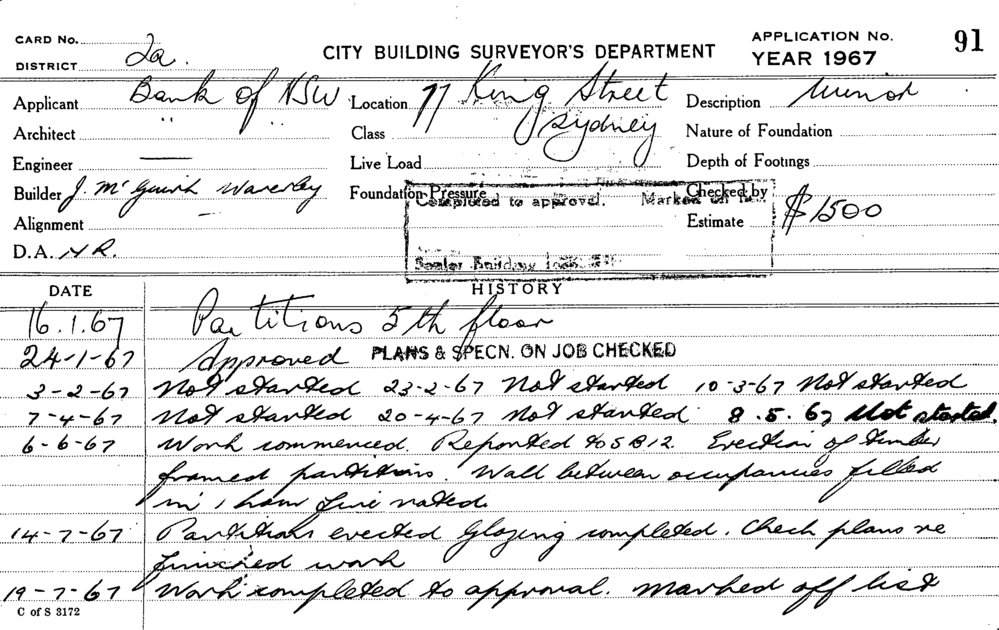 CARD No. 2a. CITY BUILDING SURVEYOR'S DEPARTMENT APPLICATION No. 91
DISTRICT YEAR 1967
Applicant Bank of NSW Location 77 King Street Description Minor
Architect " " Class Sydney Nature of Foundation
Engineer — Live Load Depth of Footings
Builder J. McGuirk Waverley Foundation Pressure Checked by
Completed to approval. Marked off
Alignment — Estimate $1500
D.A. NR.
Senior Building
DATE HISTORY
16.1.67 Partitions 5th floor
24-1-67 Approved PLANS & SPECN. ON JOB CHECKED
3-2-67 Not started 23-2-67 Not started 10-3-67 Not started
7-4-67 Not started 20-4-67 Not started 8.5.67 Not started.
6-6-67 Work commenced. Reported to S B 12. Erection of timber
framed partitions. Wall between occupancies filled
in 1 hour fire rated.
14-7-67 Partitions erected Glazing completed. Check plans re
finished work
19-7-67 Work completed to approval. Marked off list
C of S 3172